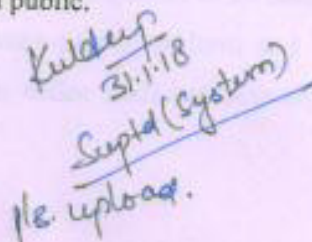 public.
Kuldeep
31.1.18
Suptd (System)
Pls. upload.